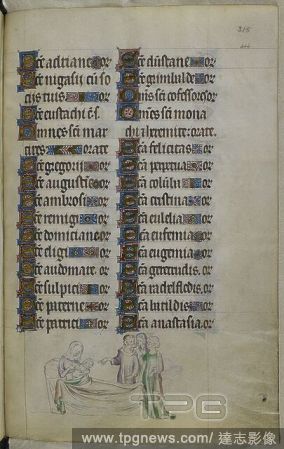 315
Sce adriane or
Sce nigasi cu so
cijs tuis or
Sce eustachi c̄ s̄.
Omnes sci mar
tires orate
Sce gregorii or
Sce augustine or
Sce ambrosi or
Sce remigi or
Sce domiciane or
Sce eligi or
Sce audomare. or
Sce sulpici or
Sce paterne or
Sce patrici or
Sce dunstane or
Sce grimbalde or
Omnes sci cofessores or
Omnes sci mona
chi & heremite. orate.
Sca felicitas or
Sca perpetua or
Sca columba or
Sca cristina or
Sca eulalia or
Sca eufemia or
Sca eugenia or
Sca gertrudis. or
Sca radefledis. or
Sca batildis or
Sca anastasia. or
TPG
www.tpgnews.com/ 達志影像